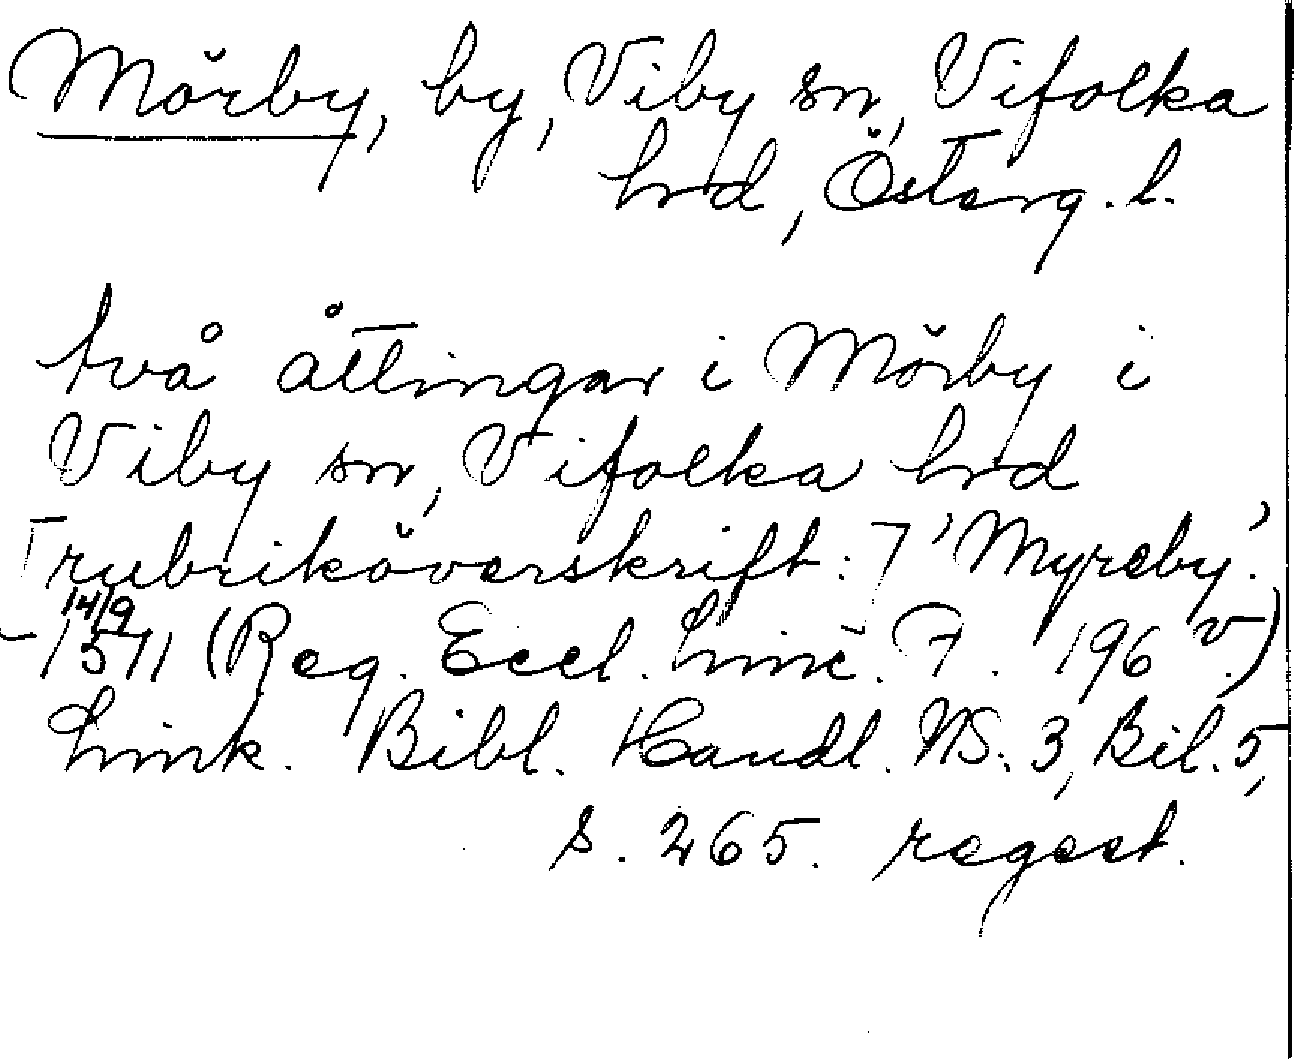 Mörby, by, Viby sn, Vifolka
hrd, Österg. l.
två åttingar i Mörby i
Viby sn, Vifolka hrd
[rubriköverskrift:] 'Myreby'.
14/9
1571 (Reg. Eccl. Linc. F. 196 v.)
Link. Bibl. Handl. NS. 3, Bil. 5,
s. 265. regest.